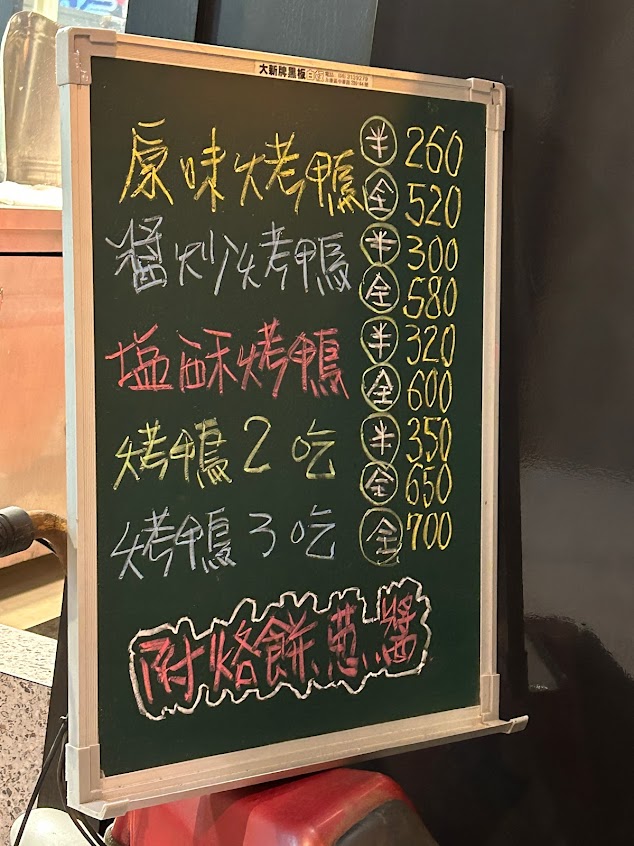 大新牌黑板
原味烤鴨 半 260
全 520
醬炒烤鴨 半 300
全 580
塩酥烤鴨 半 320
全 600
烤鴨2吃 半 350
全 650
烤鴨3吃 全 700
附烙餅、蔥、醬